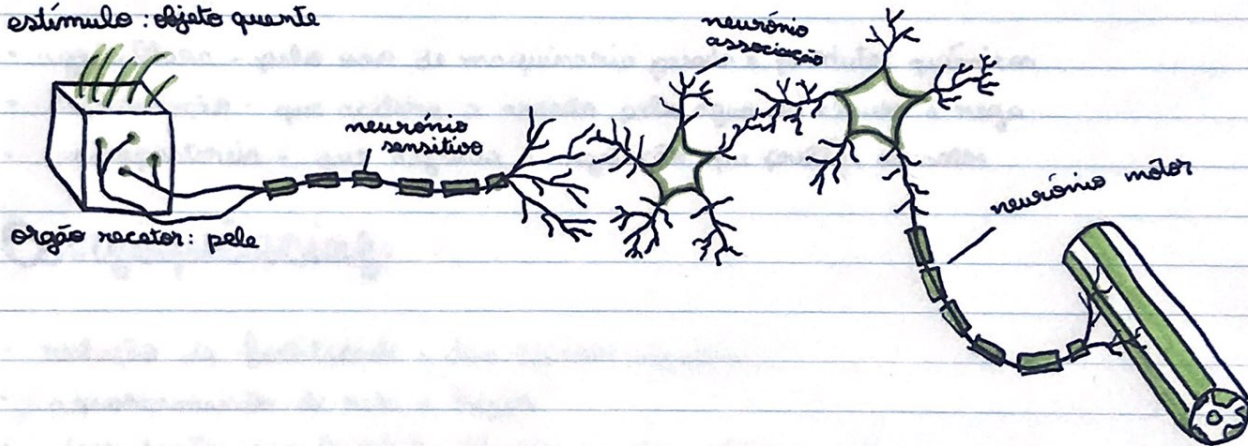 estímulo : objeto quente
neurónio
associação
neurónio
sensitivo
neurónio motor
orgão recetor: pele